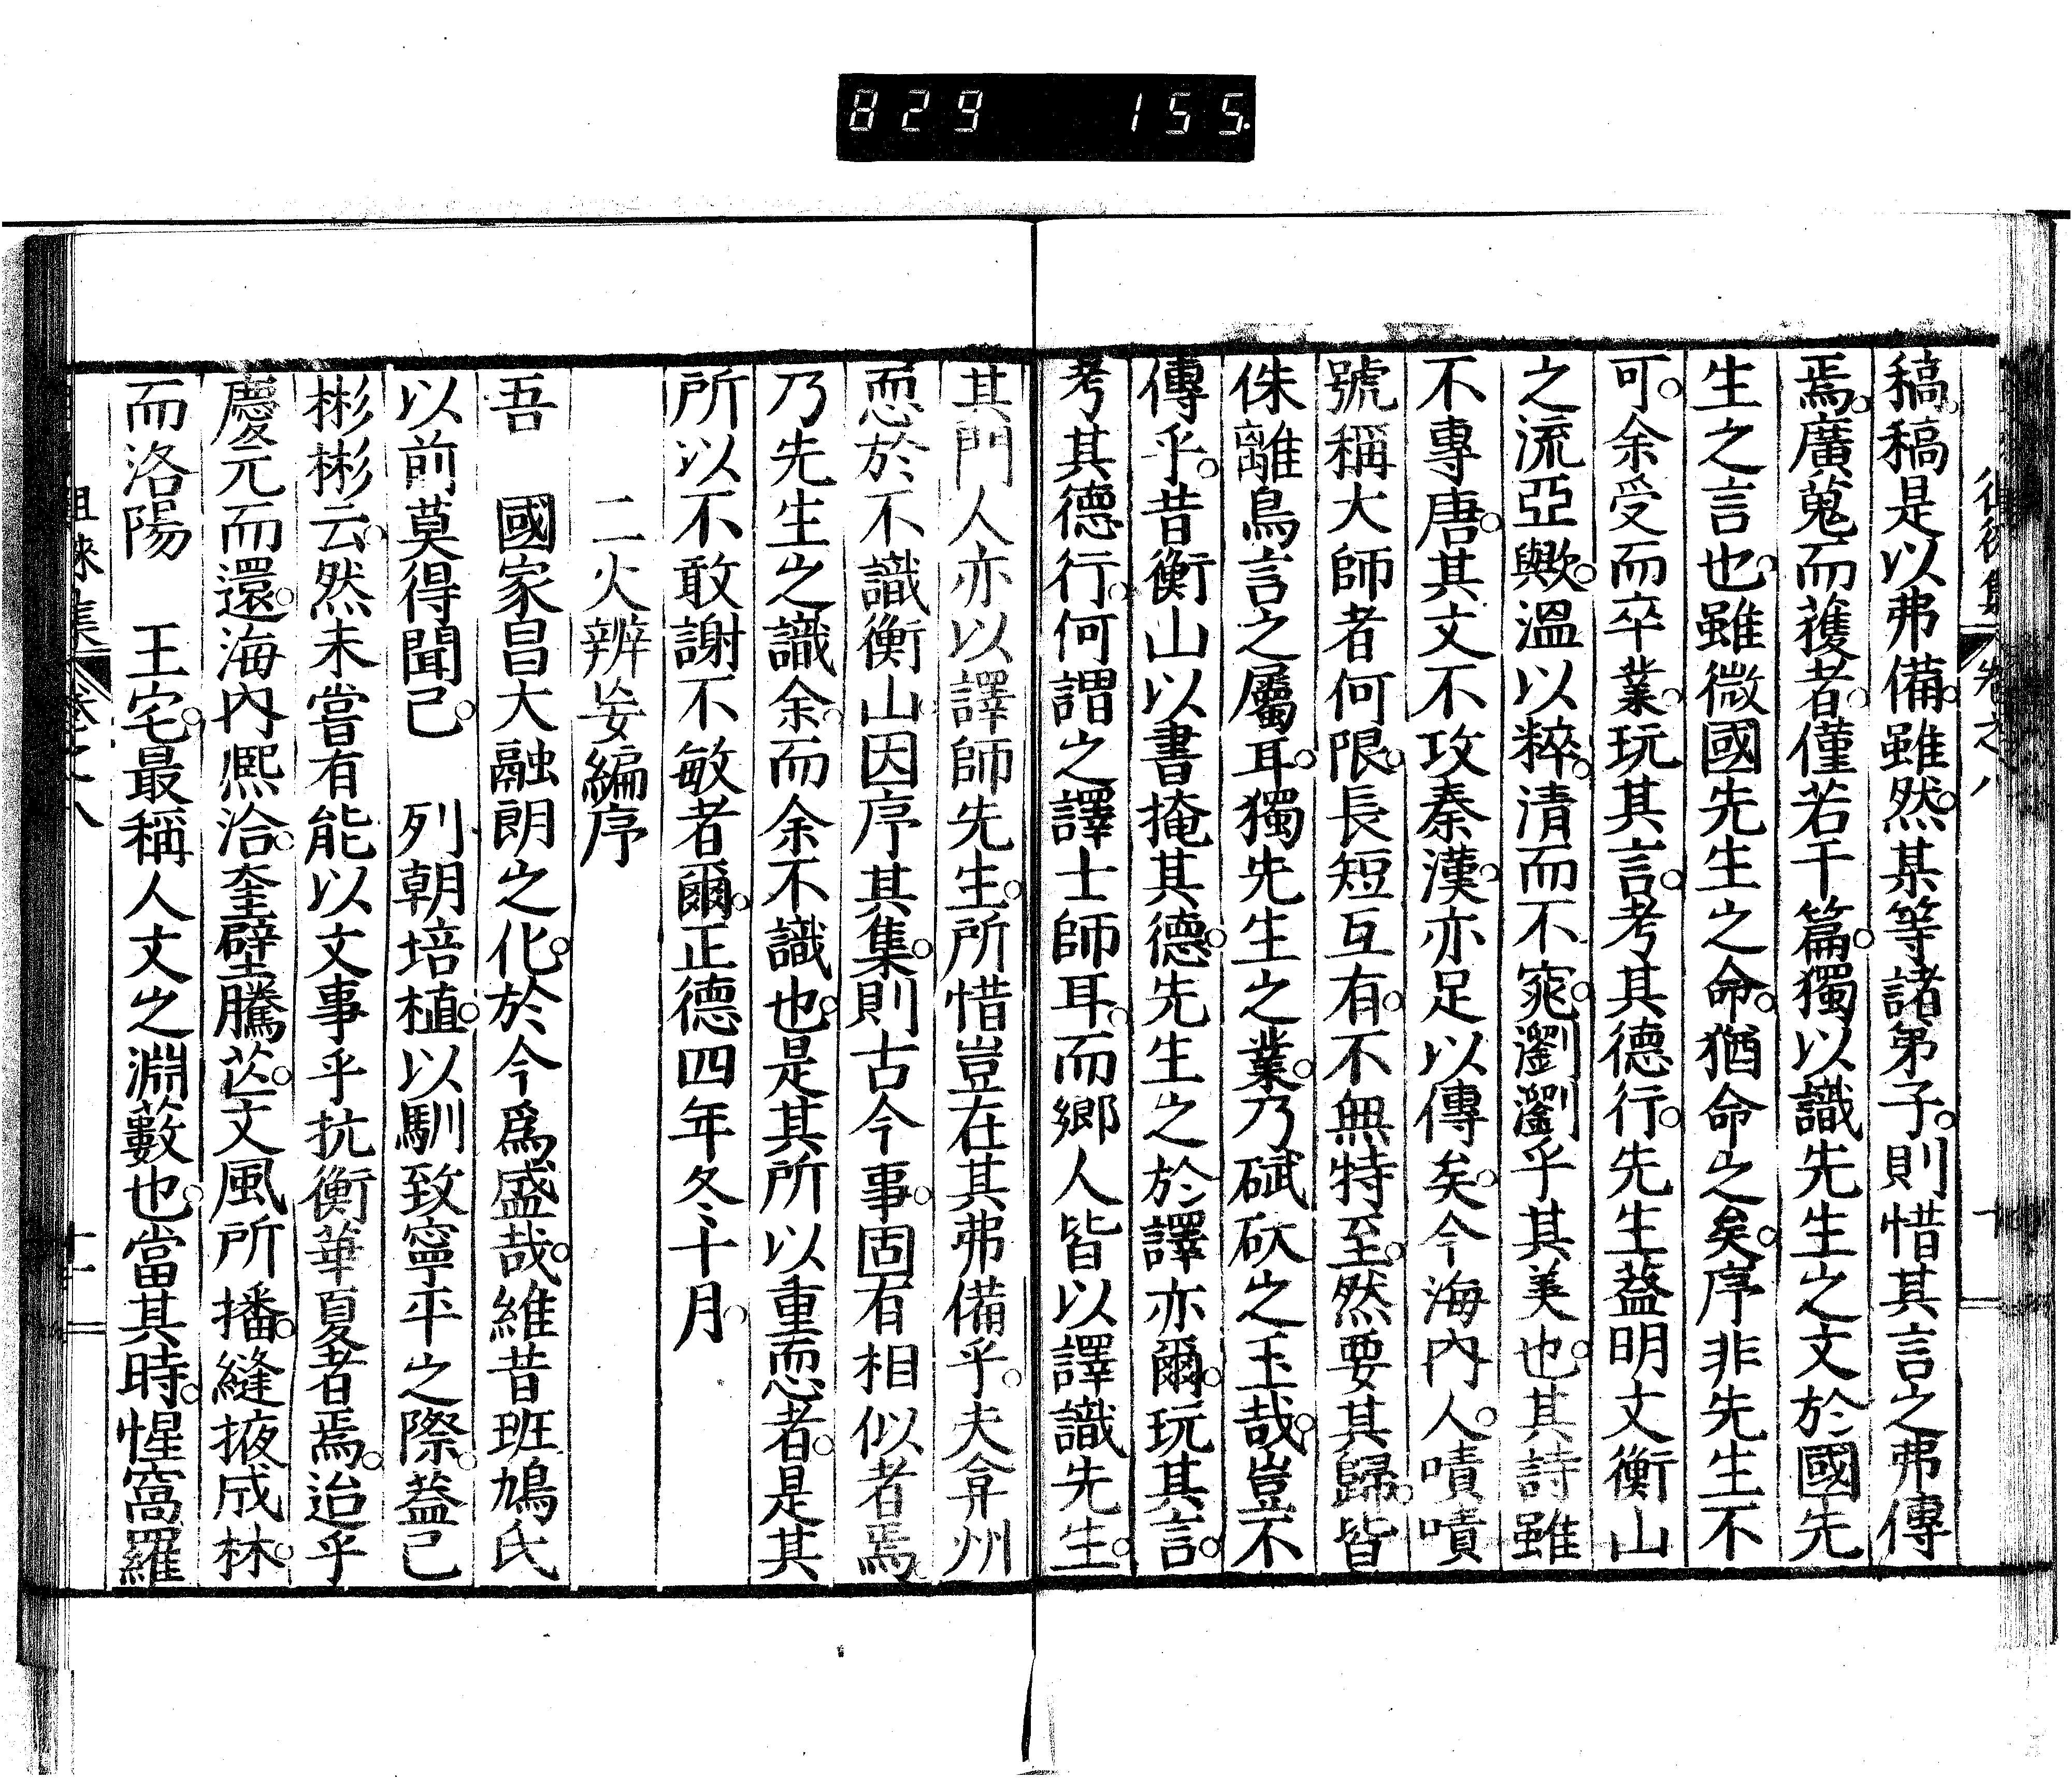 829 155.
稿。稿是以弗備。雖然。某等諸弟子。則惜其言之弗傳
焉。廣蒐而獲者。僅若干篇。獨以識先生之文於國先
生之言也。雖微國先生之命。猶命之矣。序非先生不
可。余受而卒業。玩其言。考其德行。先生蓋明文衡山
之流亞歟。溫以粹。清而不窕。瀏瀏乎其美也。其詩雖
不專唐。其文不攻秦漢。亦足以傳矣。今海內人。嘖嘖
號稱大師者何限。長短互有。不無特至。然要其歸。皆
侏離鳥言之屬耳。獨先生之業。乃碔砆之玉哉。豈不
傳乎。昔衡山以書掩其德。先生之於譯亦爾。玩其言。
考其德行。何謂之譯士師耳。而鄉人皆以譯識先生。
其門人亦以譯師先生。所惜豈在其弗備乎。夫弇州
恧於不識衡山。因序其集。則古今事。固有相似者焉。
乃先生之識余。而余不識也。是其所以重恧者。是其
所以不敢謝不敏者爾。正德四年冬十月。
二火辨妄編序
吾 國家昌大融朗之化。於今爲盛哉。維昔班鳩氏
以前莫得聞已。 列朝培植。以馴致寧平之際。蓋已
彬彬云。然未嘗有能以文事乎抗衡華夏者焉。迨乎
慶元而還。海內熈洽。奎壁騰芒。文風所播。縫掖成林。
而洛陽 王宅。最稱人文之淵藪也。當其時。惺窩羅
徂徠集 卷之八 十一